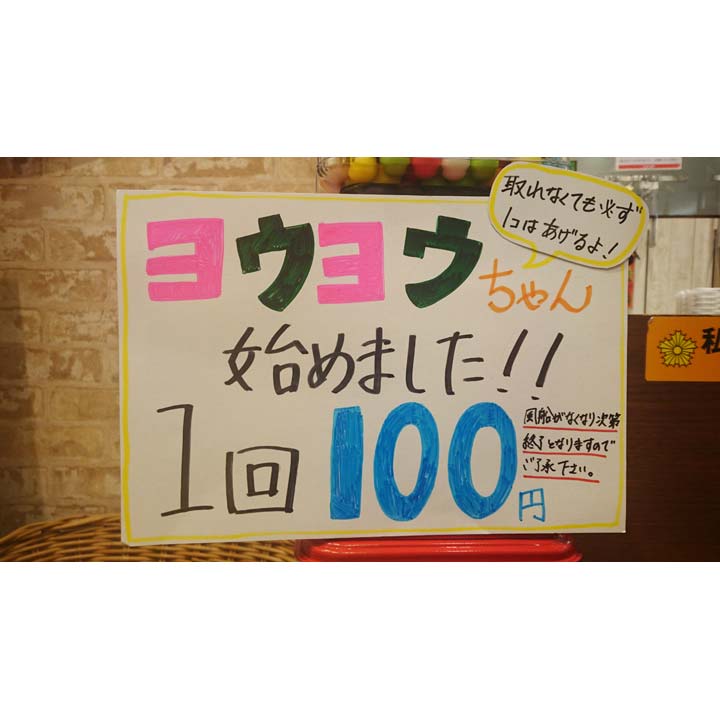 取れなくても必ず
1コはあげるよ!
ヨウヨウちゃん
始めました!!
1回100円
風船がなくなり次第
終了となりますので
ご了承下さい。
私